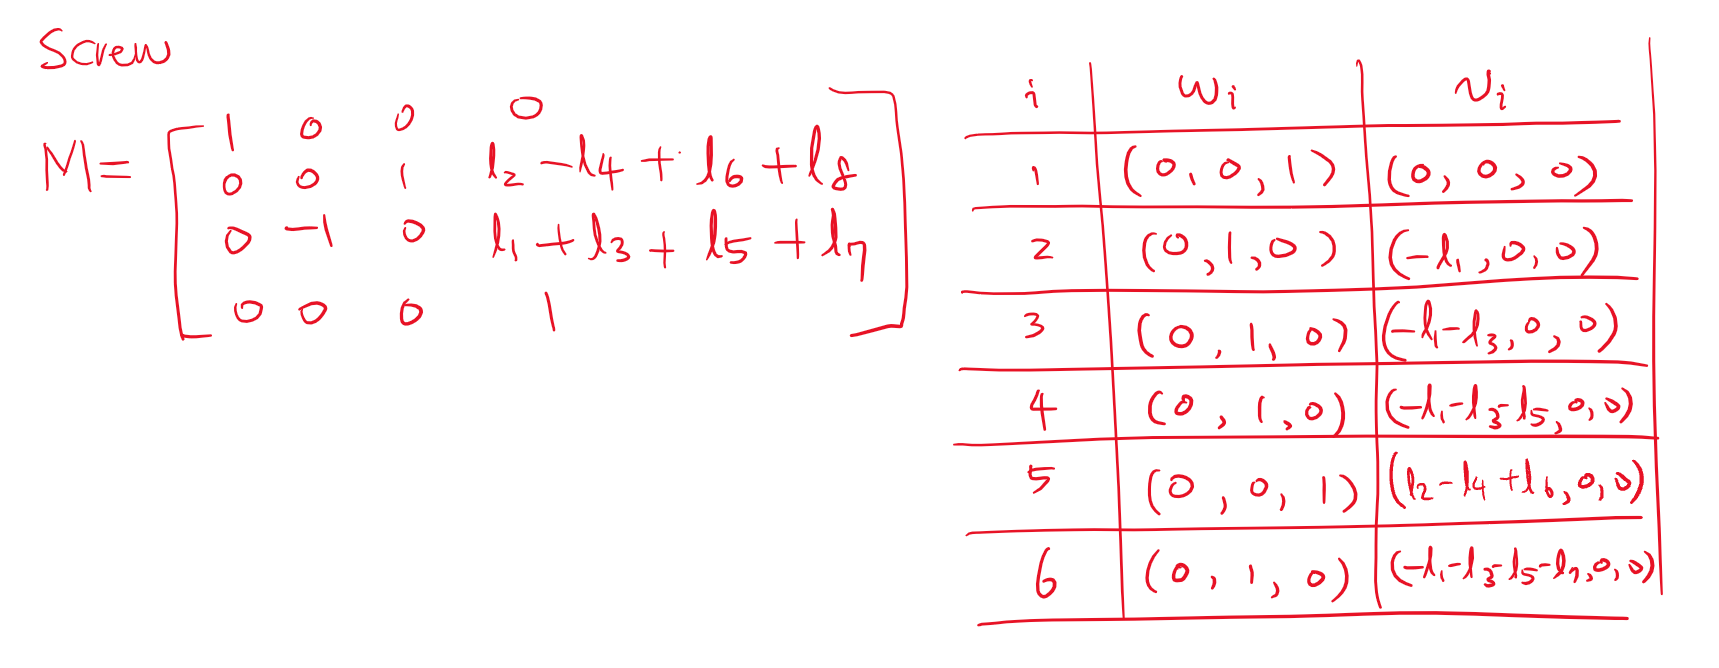 Screw
M = [ 1 0 0 0
0 0 1 l2 - l4 + l6 + l8
0 -1 0 l1 + l3 + l5 + l7
0 0 0 1 ]
i wi vi
1 (0, 0, 1) (0, 0, 0)
2 (0, 1, 0) (-l1, 0, 0)
3 (0, 1, 0) (-l1-l3, 0, 0)
4 (0, 1, 0) (-l1-l3-l5, 0, 0)
5 (0, 0, 1) (l2-l4+l6, 0, 0)
6 (0, 1, 0) (-l1-l3-l5-l7, 0, 0)